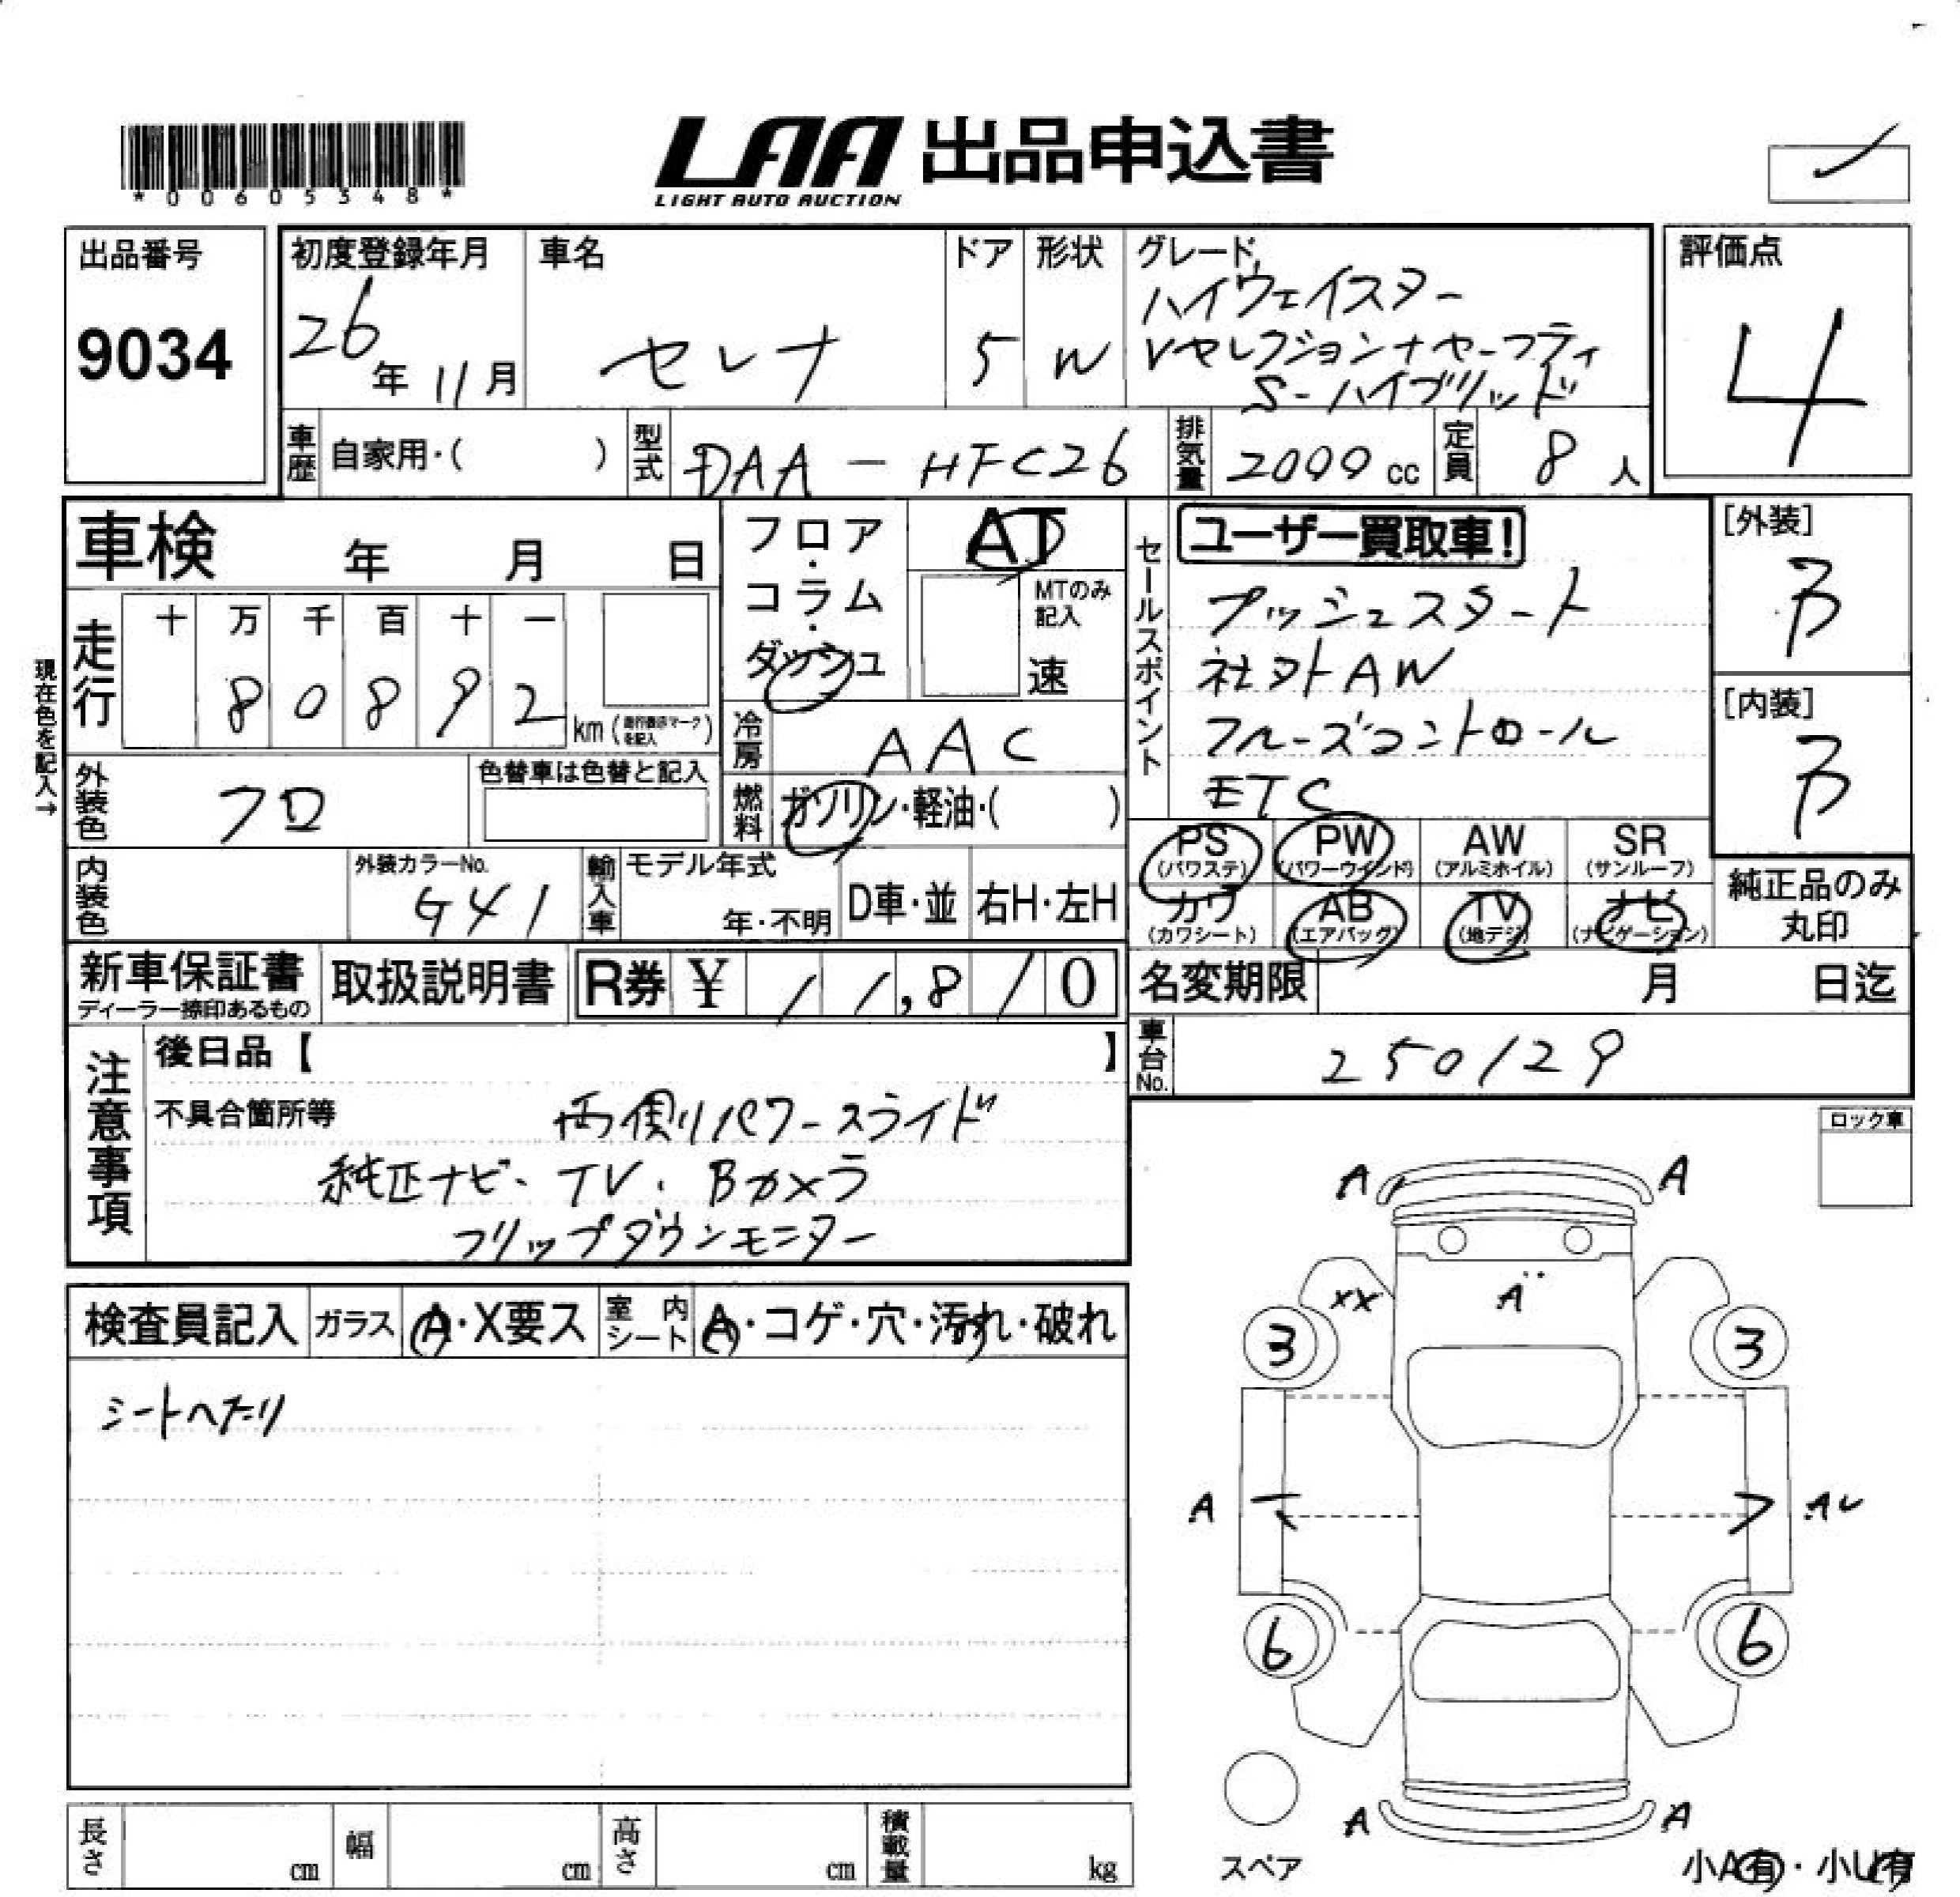 *00605348*
LAA 出品申込書
LIGHT AUTO AUCTION
出品番号
9034
初度登録年月
26年 11月
車名
セレナ
ドア
5
形状
W
グレード
ハイウェイスター
Vセレクション+セーフティ
S-ハイブリッド
評価点
4
車歴 自家用・( )
型式 DAA-HFC26
排気量 2000 cc
定員 8 人
車検 年 月 日
フロア・コラム・ダッシュ
AT
MTのみ記入
速
走行 十 万 千 百 十 一
8 0 8 9 2 km (走行表示マークを記入)
現在色を記入→
冷房 AAC
燃料 ガソリン・軽油・( )
外装色 クロ
色替車は色替と記入
内装色
外装カラーNo.
G41
輸入車 モデル年式
年・不明
D車・並
右H・左H
セールスポイント
ユーザー買取車!
プッシュスタート
社外AW
クルーズコントロール
ETC
PS (パワステ)
PW (パワーウインド)
AW (アルミホイル)
SR (サンルーフ)
カワ (カワシート)
AB (エアバッグ)
TV (地デジ)
ナビ (ナビゲーション)
[外装]
B
[内装]
B
純正品のみ丸印
新車保証書
ディーラー捺印あるもの
取扱説明書
R券 ¥ 11,810
名変期限 月 日迄
車台No. 250129
注意事項
後日品【 】
不具合箇所等
両側パワースライド
純正ナビ、TV、Bカメラ
フリップダウンモニター
ロック車
検査員記入
ガラス A・X要ス
室内シート A・コゲ・穴・汚れ・破れ
シートへたり
A A
XX A
3 3
A AU
6 6
A A
スペア
小A有・小U有
長さ cm
幅 cm
高さ cm
積載量 kg